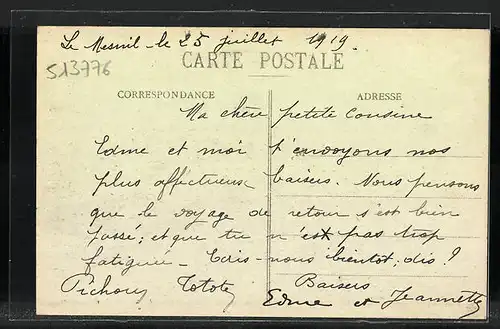 Le Mesnil - le 25 juillet 1919.
CARTE POSTALE
513776
CORRESPONDANCE
ADRESSE
Ma chère petite Cousine
Edme et moi t'envoyons nos
plus affectueux baisers. Nous pensons
que le voyage de retour s'est bien
passé; et que tu n'es pas trop
fatiguée - Ecris-nous bientôt, dis?
Baisers
Pichoux Totote
Edme et Jeannette